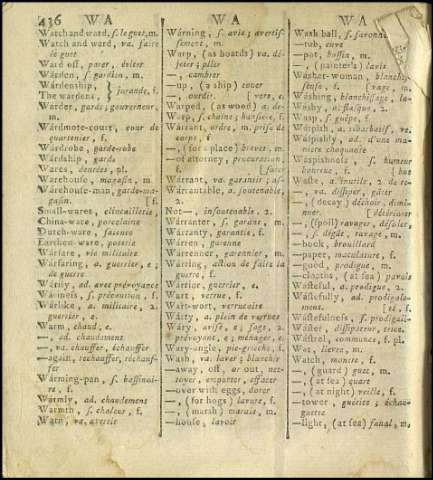 436 WA
Watch and ward, ſ. le guet, m.
Watch and ward, va. faire
le guet
Ward off, parer, éviter
Wárden, ſ. gardien, m.
Wárdenſhip,
The wardens, } jurande, f.
Wárder, garde; gouverneur,
m.
Wárdmote-court, cour de
quartenier, f.
Wárdrobe, garde-robe
Wárdſhip, garde
Wares, denrées, pl.
Warehouſe, magaſin, m.
Warehouſe-man, garde-ma-
gaſin. [f.
Small-wares, clincaillerie,
China-ware, porcelaine
Dutch-ware, faïance
Earthen-ware, poterie
Wárfare, vie militaire
Wárfaring, a. guerrier, e;
de guerre
Wárily, ad. avec prévoyance
Wárineſs, ſ. précaution, f.
Wárlike, a. militaire, 2.
guerrier, e.
Warm, chaud, e.
—, ad. chaudement
—, va. chauffer, échauffer
—again, rechauffer, réchauf-
fer
Wárming-pan, ſ. baſſinoi-
re, f.
Wármly, ad. chaudement
Warmth, ſ. chaleur, f.
Warn, va. avertir
WA
Wárning, ſ. avis; avertiſ-
ſement, m.
Warp, (as boards) va. dé-
jeter; plier
—, cambrer
—up, (a ſhip) touer
—, ourdir [vere, e.
Warped, (as wood) a. de-
Warp, ſ. chaîne; hanſiere, f.
Wárrant, ordre, m. priſe de
corps, f.
—, (for a place) brevet, m.
— of attorney, procuration,
f. [ſurer
Wárrant, va. garantir; aſ-
Wárrantable, a. ſoutenable,
2.
Not—, inſoutenable, 2.
Wárranter, ſ. garant, m.
Wárranty, garantie, f.
Wárren, garenne
Wárrener, garennier, m.
Wárring, action de faire la
guerre, f.
Wárriour, guerrier, e.
Wart, verrue, f.
Wart-wort, verrucaire
Wárty, a. plein de verrues
Wáry, aviſé, e; ſage, 2.
prévoyant, e; ménager, e.
Wary-angle, pie-grieche, f.
Waſh, va. laver; blanchir
—away, off, or out, net-
toyer, emporter, effacer
—over with eggs, dorer
—, (for hogs) lavure, f.
—, (marſh) marais, m.
—houſe, lavoir
WA
Waſh ball, ſ. ſavonnette
—tub, cuve
—pot, baſſin, m.
—, (painter's) lavis
Wáſher-woman, blanchiſ-
ſeuſe, f. [vage, m.
Wáſhing, blanchiſſage, la-
Wáſhy, a. flaſque, 2.
Waſp, ſ. guêpe, f.
Wáſpiſh, a. rebarbatif, ve.
Wáſpiſhly, ad. d'une ma-
niere choquante
Wáſpiſhneſs, ſ. humeur
bourrue, f.
Waſte, a. inutile, 2. de re-
—, va. diſſiper, gâter
—, (decay) déchoir, dimi-
nuer [détériorer
—, (ſpoil) ravager, déſoler,
—, ſ. dégât, ravage, m.
—book, brouillard
—paper, maculature, f.
—good, prodigue, m.
—cloaths, (at ſea) pavois
Wáſteful, a. prodigue, 2.
Wáſtefully, ad. prodigale-
ment. [té, f.
Wáſtefulneſs, ſ. prodigali-
Wáſter, diſſipateur, trice.
Wáſtrel, commune, f. pl.
Wat, lievre, m.
Watch, montre, f.
—, (guard) guet, m.
—, (at ſea) quart
—, (at night) veille, f.
—tower, guérite; échau-
guette
—light, (at ſea) fanal, m.